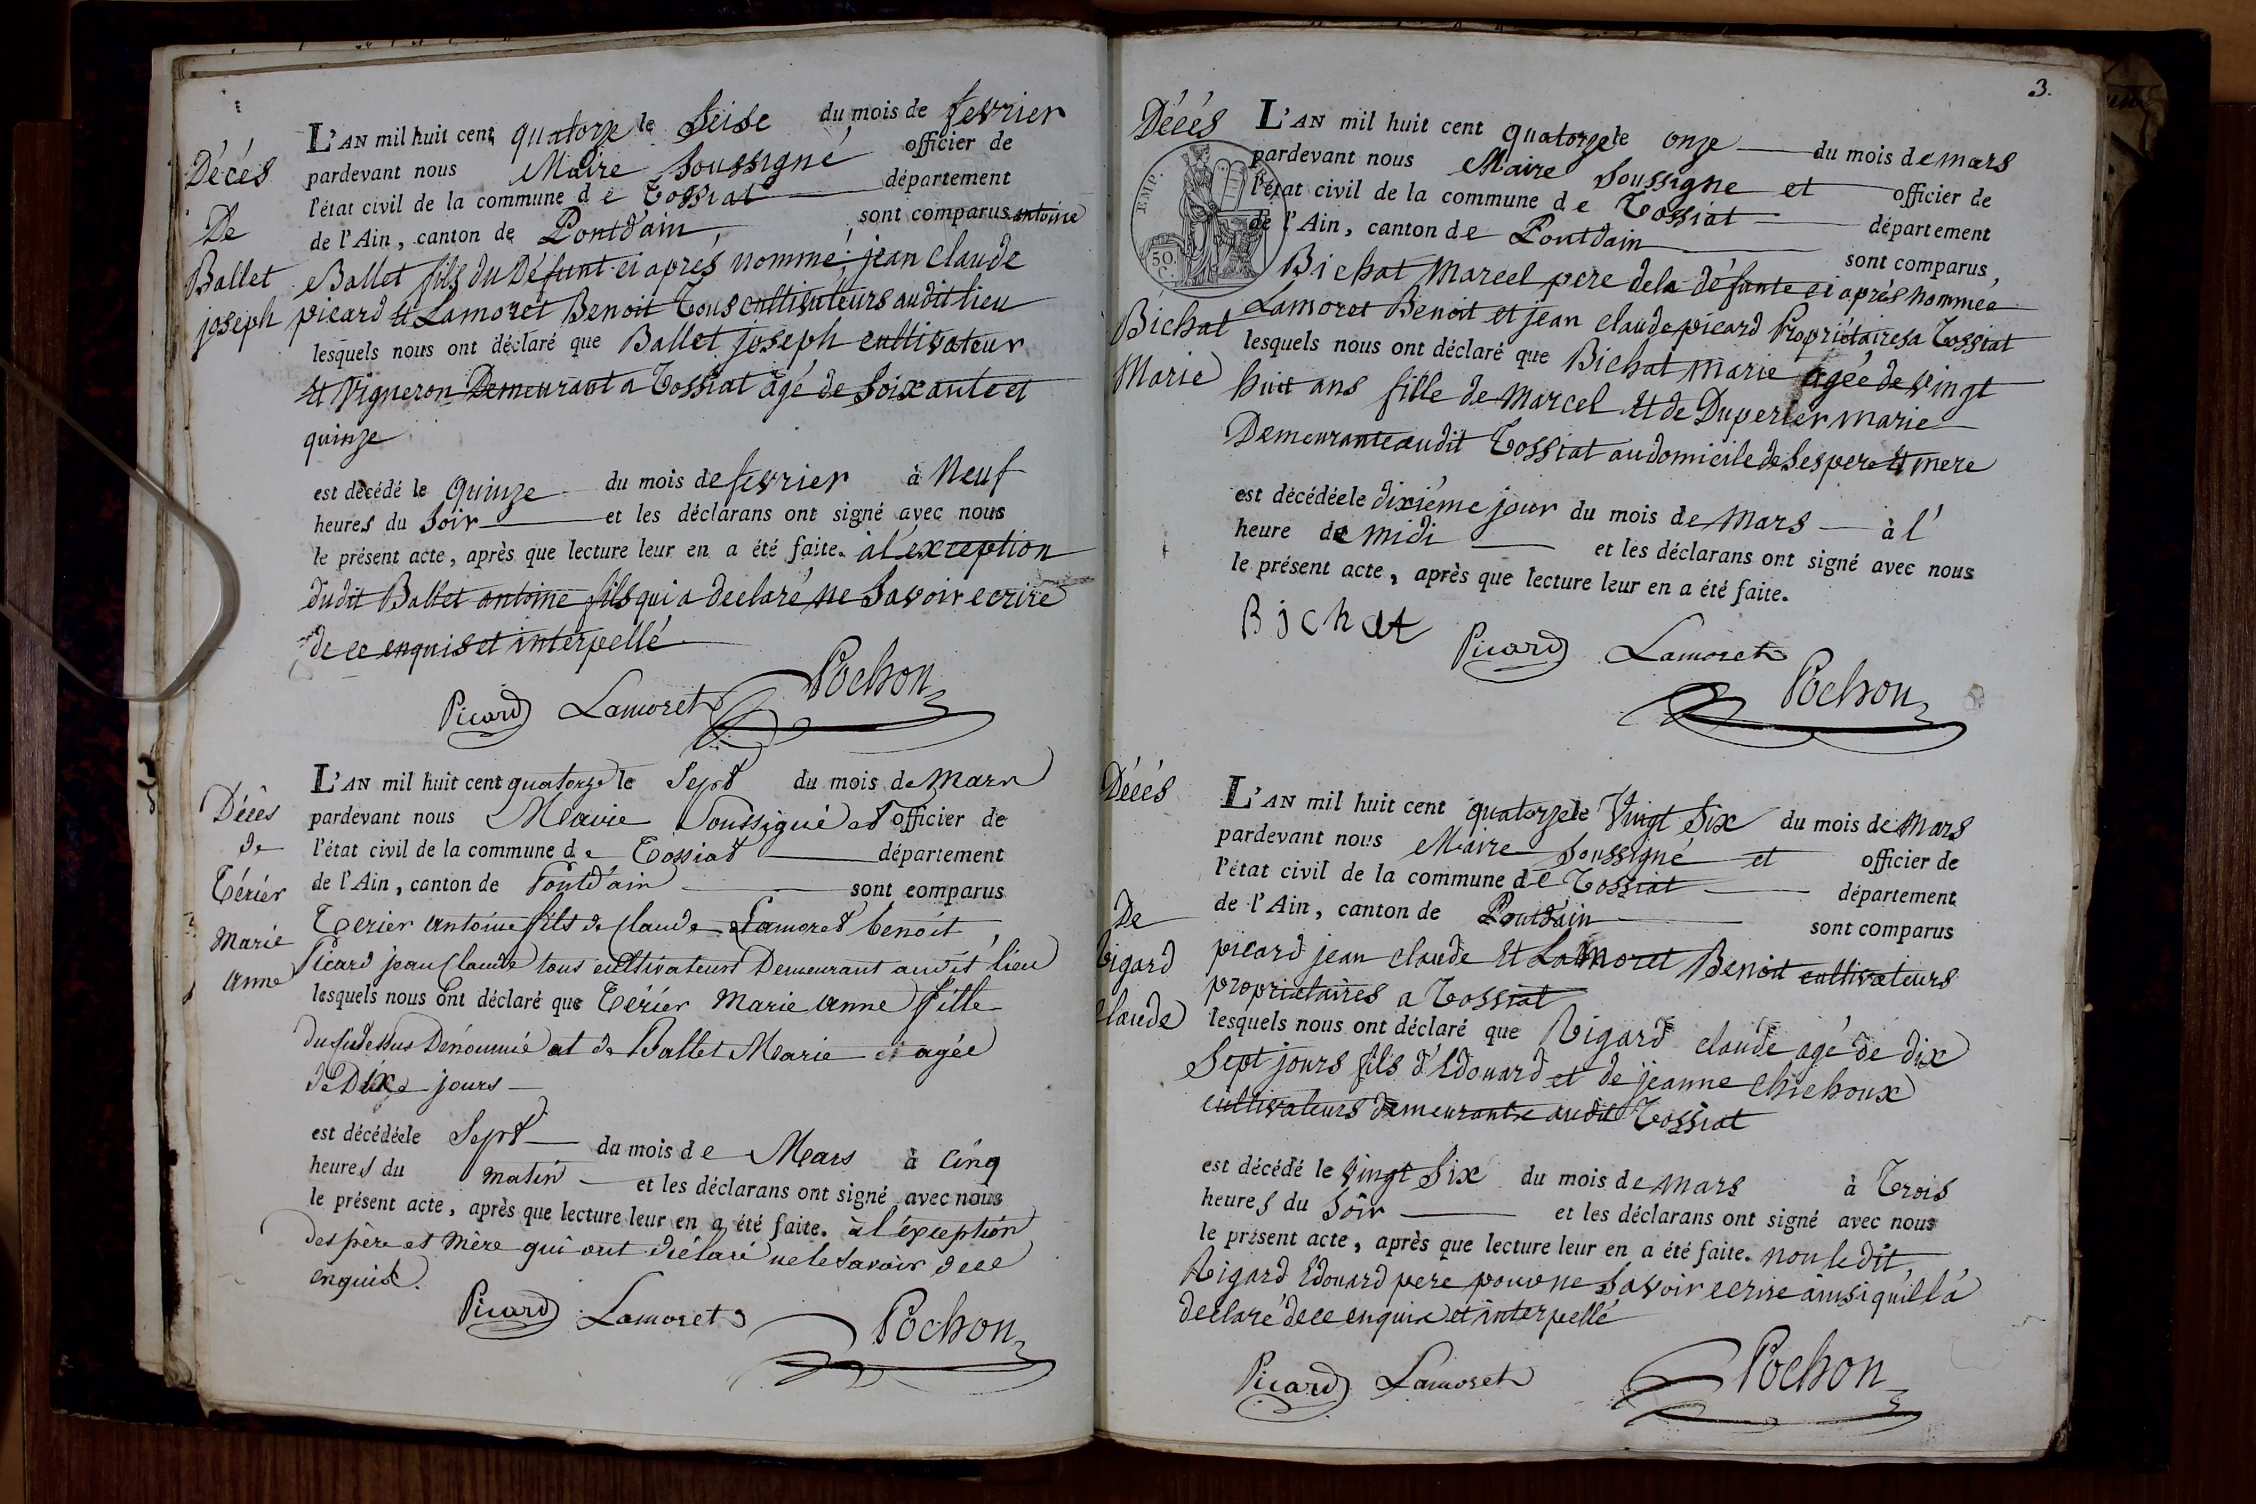 Décés
De
Ballet
joseph
L'AN mil huit cent quatorze le Seise du mois de fevrier
pardevant nous Maire Soussigné officier de
l'état civil de la commune de Tossiat département
de l'Ain, canton de Pontdain, sont comparus antoine
Ballet fils du Défunt ci aprés nommé jean Claude
picard et Lamoret Benoit Tous cultivateurs audit lieu
lesquels nous ont déclaré que Ballet joseph cultivateur
et Vigneron Demeurant a Tossiat agé de Soixante et
quinze
est décédé le quinze du mois de fevrier à Neuf
heures du Soir et les déclarans ont signé avec nous
le présent acte, après que lecture leur en a été faite. a l'exception
dudit Ballet antoine fils qui a declaré ne Savoir ecrire
de ce enquis et interpellé
Picard Lamoret Pochon
Décès
de
Térier
Marie
anne
L'AN mil huit cent quatorze le Sept du mois de Mars
pardevant nous Maire Soussigné et officier de
l'état civil de la commune de Tossiat département
de l'Ain, canton de Pontd'ain sont comparus
Terier Antoine fils de Claude Lamoret benoit,
Picard jean Claude tous cultivateurs Demeurant audit lieu
lesquels nous ont déclaré que Térier Marie Anne fille
du Dénommé et de Ballet Marie agée
de Dix jours
est décédée le Sept du mois de Mars à cinq
heures du matin et les déclarans ont signé avec nous
le présent acte, après que lecture leur en a été faite. à l'exception
des père et Mère qui ont déclaré ne le savoir de ce
enquis.
Picard Lamoret Pochon
3.
Décés
Bichat
Marie
EMP.
50.
C.
L'AN mil huit cent quatorze le onze du mois de mars
pardevant nous Maire Soussigne et officier de
l'état civil de la commune de Tossiat département
de l'Ain, canton de Pontdain sont comparus,
Bichat Marcel pere dela défunte ci après Nommée
Lamoret Benoit et jean claude picard Propriétaires a Tossiat
lesquels nous ont déclaré que Bichat Marie agée de vingt
huit ans fille de Marcel et de Duperier Marie
Demeurante audit Tossiat au domicile de Ses pere et mere
est décédée le dixiéme jour du mois de Mars à l'
heure de Midi et les déclarans ont signé avec nous
le présent acte, après que lecture leur en a été faite.
Bichat
Picard Lamoret
Pochon
Décés
De
Rigard
Claude
L'AN mil huit cent quatorze le Vingt Six du mois de Mars
pardevant nous Maire Soussigné et officier de
l'état civil de la commune de Tossiat département
de l'Ain, canton de Pontdain sont comparus
picard jean claude et Lamoret Benoit cultivateurs
propriétaires a Tossiat
lesquels nous ont déclaré que Rigard claude agé de dix
Sept jours fils d'Edouard et de jeanne Chichoux
cultivateurs demeurants audit Tossiat
est décédé le Vingt Six du mois de Mars à Trois
heures du Soir et les déclarans ont signé avec nous
le présent acte, après que lecture leur en a été faite. non ledit
Rigard Edouard pere pour ne Savoir ecrire ainsi qu'il la
declaré de ce enquis et interpellé
Picard Lamoret Pochon